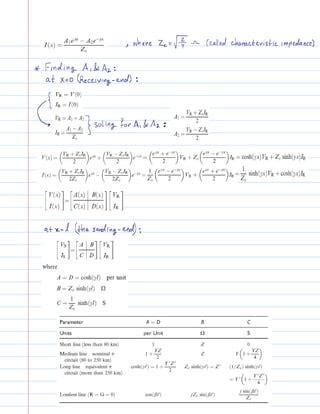 I(x) = (A₁e^{γx} − A₂e^{−γx}) / Z_c , where Z_c = √(z/y) ~ (called characteristic impedance)
* Finding A₁ & A₂ :
at x=0 (Receiving-end) :
V_R = V(0)
I_R = I(0)
V_R = A₁ + A₂
I_R = (A₁ − A₂) / Z_c
soling for A₁ & A₂ :
A₁ = (V_R + Z_cI_R) / 2
A₂ = (V_R − Z_cI_R) / 2
V(x) = ((V_R + Z_cI_R)/2) e^{γx} + ((V_R − Z_cI_R)/2) e^{−γx} = ((e^{γx} + e^{−γx})/2) V_R + Z_c ((e^{γx} − e^{−γx})/2) I_R = cosh(γx)V_R + Z_c sinh(γx)I_R
I(x) = ((V_R + Z_cI_R)/2Z_c) e^{γx} − ((V_R − Z_cI_R)/2Z_c) e^{−γx} = (1/Z_c) ((e^{γx} − e^{−γx})/2) V_R + ((e^{γx} + e^{−γx})/2) I_R = (1/Z_c) sinh(γx)V_R + cosh(γx)I_R
[V(x) I(x)] = [A(x) B(x) C(x) D(x)] [V_R I_R]
at x=l (the sending-end) :
[V_S I_S] = [A B C D] [V_R I_R]
where
A = D = cosh(γl) per unit
B = Z_c sinh(γl) Ω
C = (1/Z_c) sinh(γl) S
Parameter A = D B C
Units per Unit Ω S
Short line (less than 80 km) 1 Z 0
Medium line—nominal π circuit (80 to 250 km) 1 + YZ/2 Z Y(1 + YZ/4)
Long line—equivalent π circuit (more than 250 km) cosh(γl) = 1 + Y′Z′/2 Z_c sinh(γl) = Z′ (1/Z_c) sinh(γl)
= Y′(1 + Y′Z′/4)
Lossless line (R = G = 0) cos(βl) jZ_c sin(βl) j sin(βl)/Z_c